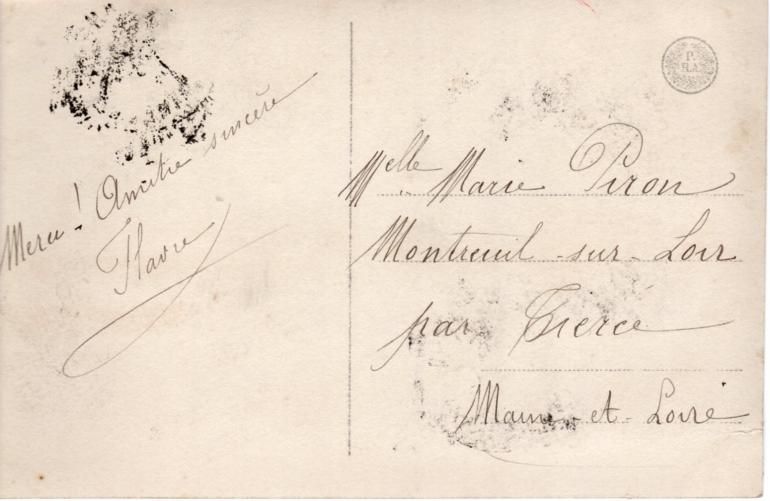 Merci! Amitié sincère
Flavie
P.
R.A.
Melle Marie Piron
Montreuil-sur-Loir
par Tiercé
Maine-et-Loire